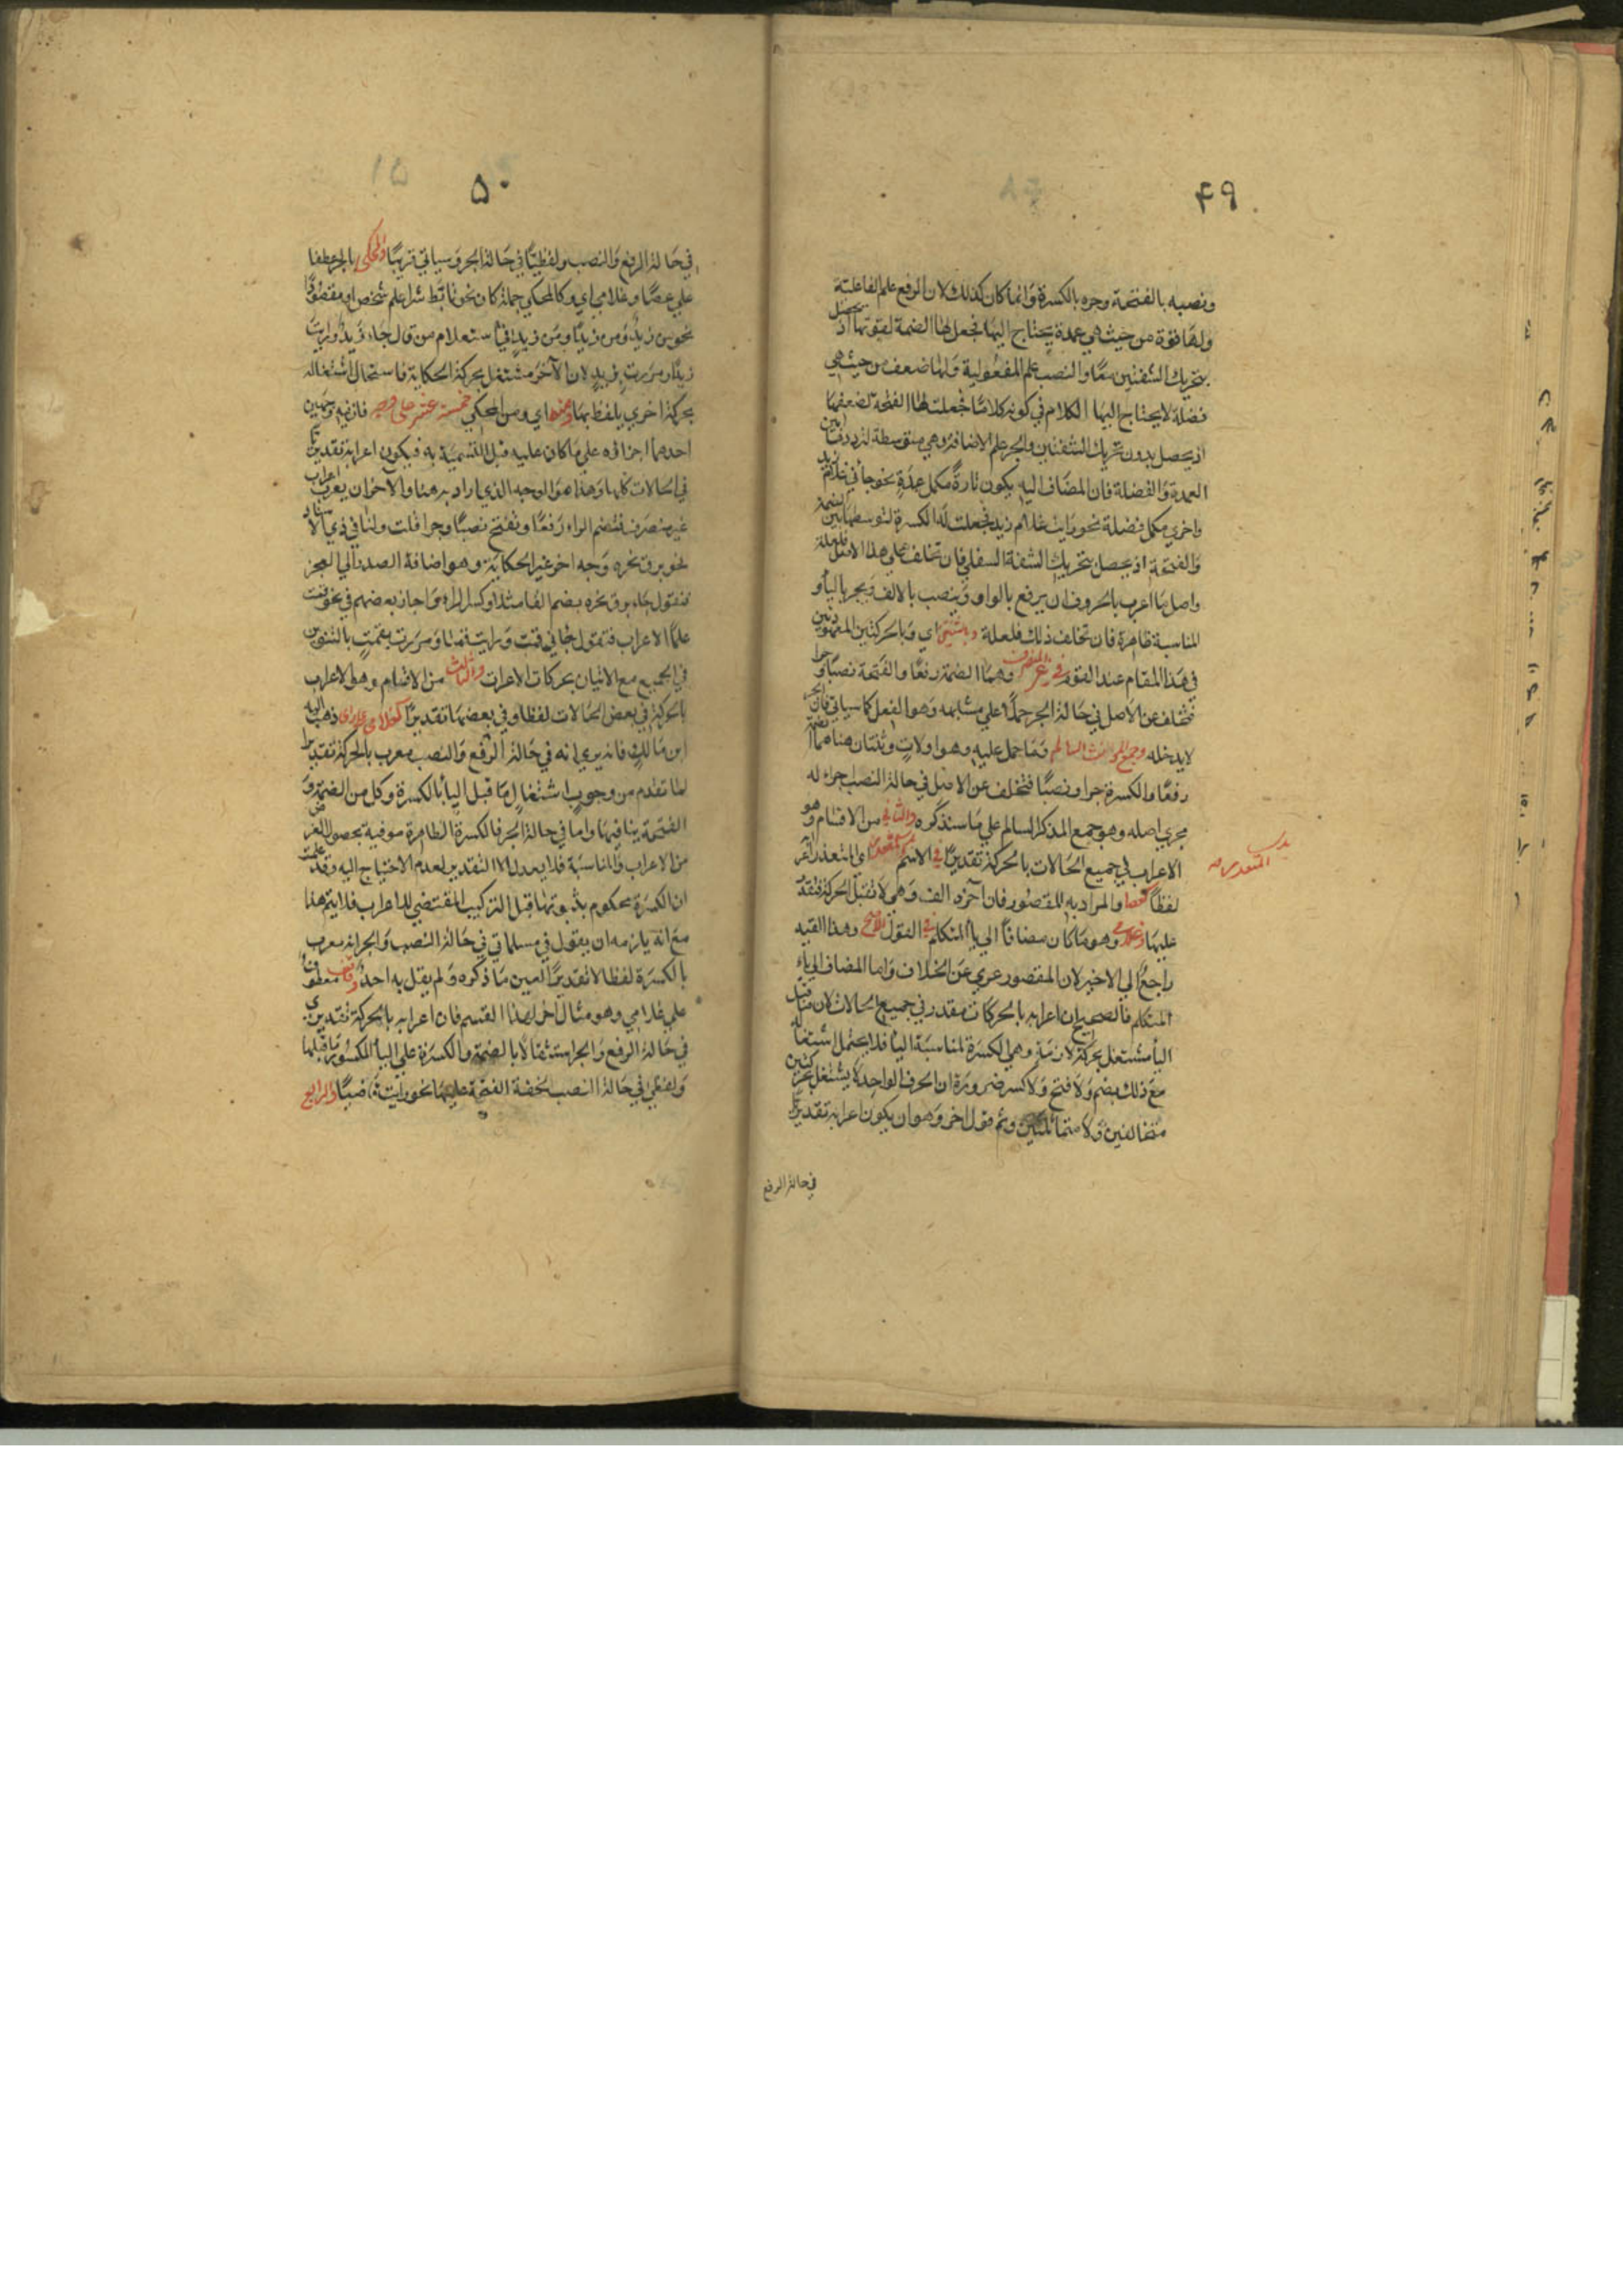 ۴۹
ونصبه بالفتحة وجره بالكسرة وانما كان كذلك لان الرفع علم الفاعلية
ولها قوة من حيث هي عمدة يحتاج اليها فجعل لها الضمة لقوتها اذ تحصل
بتحريك الشفتين معًا والنصب علم المفعولية ولها ضعف من حيث هي
فضلة لا يحتاج اليها الكلام في كونه كلامًا فجعلت لها الفتحة لضعفها
اذ يحصل بدون تحريك الشفتين والجر علم الاضافة وهي متوسطة لترددها بين
العمدة والفضلة فان المضاف اليه يكون تارةً مكمل عمدةٍ نحو جاءني غلام زيد
واخري مكمل فضلة نحو رايت غلام زيد فجعلت له الكسرة لتوسطها بين الضمة
والفتحة اذ يحصل بتحريك الشفة السفلي فان تخلف علي هذا الاصل فلعلة
واصل ما اعرب بالحروف ان يرفع بالواو وينصب بالالف ويجر بالياء و
المناسبة ظاهرة فان تخلف ذلك فلعلة وباثنتين اي وبالحركتين المعهودتين
في هذا المقام عند القوم في غير المنصرف وهما الضمة رفعًا والفتحة نصبًا وجرا
فتخلف عن الاصل في حالة الجر حملًا علي مشابهه وهو الفعل كما سياتي فان الجر
لا يدخله وجمع المونث السالم وما حمل عليه وهو اولات وثنتان هنا هما الضمة
رفعًا والكسرة جرا ونصبًا فتخلف عن الاصل في حالة النصب اجراء له
مجري اصله وهو جمع المذكر السالم علي ما سنذكره والثاني من الاقسام وهو
الاعراب في جميع الحالات بالحركة تقديرًا في الاسم اي المتعذر
لفظًا كعصا والمراد به المقصور فان آخره الف وهي لا تقبل الحركة فتقدر
عليها وغلامي وهو ما كان مضافًا الي ياء المتكلم في القول الاصح وهذا القيد
راجعٌ الي الاخير لان المقصور عري عن الخلاف واما المضاف الي ياء
المتكلم فالصحيح ان اعرابه بالحركات مقدر في جميع الحالات لان ما قبل
الياء مشتغل بحركة لازمة وهي الكسرة لمناسبة الياء فلا يحتمل اشتغاله
مع ذلك بضم ولا فتح ولا كسر ضرورة ان الحرف الواحد لا يشتغل بحركتين
متخالفتين ولا متماثلتين وثم قول اخر وهو ان يكون اعرابه تقديريا
في حالة الرفع
۵۰
في حالة الرفع والنصب ولفظيًا في حالة الجر وسياتي قريبًا والمحكي بالجر عطفا
علي عصا وغلامي اي وكالمحكي جملة كان نحو تابط شرا علم شخص او مفردًا
نحو من زيدٌ ومن زيدًا ومن زيدٍ في استعلام من قال جاء زيدٌ ورايت
زيدًا ومررت بزيدٍ لان الآخر مشتغل بحركة الحكاية فاستحال اشتغاله
بحركة اخري يلفظ بها ومنه اي ومن المحكي خمسة عشر علما فان فيه وجهين
احدهما اجزاؤه علي ما كان عليه قبل التسمية به فيكون اعرابه تقديريًا
في الحالات كلها وهذا هو الوجه الذي اراد به هنا والاخر ان يعرب اعراب
غير منصرف فتضم الراء رفعًا وتفتح نصبًا وجرا قلت ولنا في ذي الاسناد
نحو برق نحره وجه اخر غير الحكاية وهو اضافة الصدر الي العجز
فنقول جاء برق نحره بضم القاف مثلًا وكسر الراء واجاز بعضهم في نحو قمت
علمًا الاعراب فتقول جاءني قمت ورايت قمتا ومررت بقمتٍ بالتنوين
في الجميع مع الاتيان بحركات الاعراب والثالث من الاقسام وهو الاعراب
بالحركة في بعض الحالات لفظا وفي بعضها تقديرًا كغلامي علي راي ذهب اليه
ابن مالك فانه يري انه في حالة الرفع والنصب معرب بالحركة تقديرا
لما تقدم من وجوب اشتغال ما قبل الياء بالكسرة وكل من الضمة و
الفتحة ينافيها واما في حالة الجر فالكسرة الظاهرة موفية بحصول الغرض
من الاعراب والمناسبة فلا يعدل الا التقدير لعدم الاحتياج اليه وقد علمت
ان الكسرة محكوم بثبوتها قبل التركيب المقتضي للاعراب فلا يتم هذا
مع انه يلزمه ان يقول في مسلماتي في حالة النصب والجر انه معرب
بالكسرة لفظا لا تقديرًا لعين ما ذكره ولم يقل به احد وقاض معطوف
علي غلامي وهو مثال اخر لهذا القسم فان اعرابه بالحركة تقديري
في حالة الرفع والجر استثقالا بالضمة والكسرة علي الياء المكسور ما قبلها
ولفظي في حالة النصب لخفة الفتحة عليها نحو رايت قاضيًا والرابع